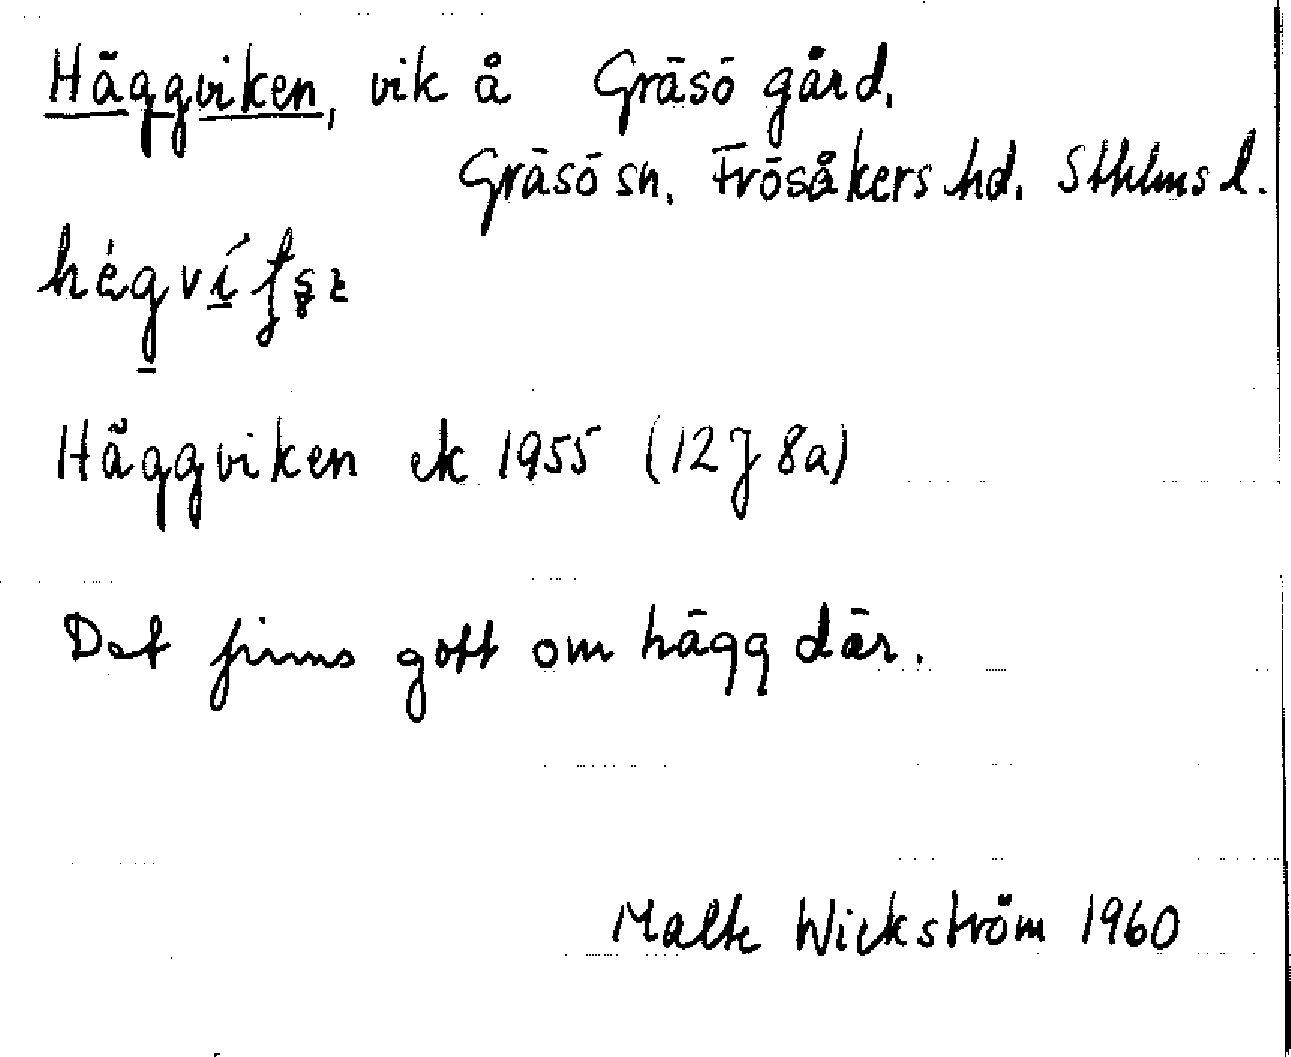 Häggviken, vik å Gräsö gård,
Gräsö sn, Frösåkers hd. Sthlms l.
Häggviken ek 1955 (12J 8a)
Det finns gott om hägg där.
Malte Wickström 1960